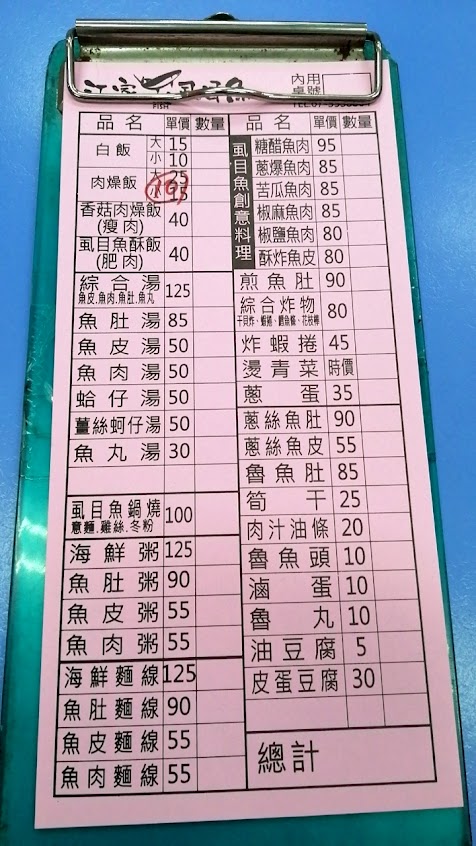 FISH
內用
桌號
品名 單價 數量
白飯 大 15
小 10
肉燥飯 25
香菇肉燥飯
(瘦肉) 40
虱目魚酥飯
(肥肉) 40
綜合湯
魚皮、魚肉、魚肚、魚丸 125
魚肚湯 85
魚皮湯 50
魚肉湯 50
蛤仔湯 50
薑絲蚵仔湯 50
魚丸湯 30
虱目魚鍋燒
意麵、雞絲、冬粉 100
海鮮粥 125
魚肚粥 90
魚皮粥 55
魚肉粥 55
海鮮麵線 125
魚肚麵線 90
魚皮麵線 55
魚肉麵線 55
品名 單價 數量
虱目魚創意料理
糖醋魚肉 95
蔥爆魚肉 85
苦瓜魚肉 85
椒麻魚肉 85
椒鹽魚肉 80
酥炸魚皮 80
煎魚肚 90
綜合炸物 80
炸蝦捲 45
燙青菜 時價
蔥蛋 35
蔥絲魚肚 90
蔥絲魚皮 55
魯魚肚 85
筍干 25
肉汁油條 20
魯魚頭 10
滷蛋 10
魯丸 10
油豆腐 5
皮蛋豆腐 30
總計